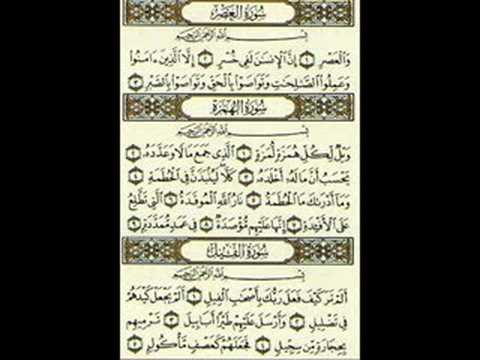 سُورَةُ العَصْرِ
بِسْمِ اللَّهِ الرَّحْمَٰنِ الرَّحِيمِ
وَالْعَصْرِ ١ إِنَّ الْإِنسَٰنَ لَفِى خُسْرٍ ٢ إِلَّا الَّذِينَ ءَامَنُوا
وَعَمِلُوا الصَّٰلِحَٰتِ وَتَوَاصَوْا بِالْحَقِّ وَتَوَاصَوْا بِالصَّبْرِ ٣
سُورَةُ الهُمَزَةِ
بِسْمِ اللَّهِ الرَّحْمَٰنِ الرَّحِيمِ
وَيْلٌ لِّكُلِّ هُمَزَةٍ لُّمَزَةٍ ١ الَّذِى جَمَعَ مَالًا وَعَدَّدَهُ ٢
يَحْسَبُ أَنَّ مَالَهُ أَخْلَدَهُ ٣ كَلَّا لَيُنبَذَنَّ فِى الْحُطَمَةِ ٤
وَمَا أَدْرَىٰكَ مَا الْحُطَمَةُ ٥ نَارُ اللَّهِ الْمُوقَدَةُ ٦ الَّتِى تَطَّلِعُ
عَلَى الْأَفْـِٔدَةِ ٧ إِنَّهَا عَلَيْهِم مُّؤْصَدَةٌ ٨ فِى عَمَدٍ مُّمَدَّدَةٍ ٩
سُورَةُ الفِيلِ
بِسْمِ اللَّهِ الرَّحْمَٰنِ الرَّحِيمِ
أَلَمْ تَرَ كَيْفَ فَعَلَ رَبُّكَ بِأَصْحَٰبِ الْفِيلِ ١ أَلَمْ يَجْعَلْ كَيْدَهُمْ
فِى تَضْلِيلٍ ٢ وَأَرْسَلَ عَلَيْهِمْ طَيْرًا أَبَابِيلَ ٣ تَرْمِيهِم
بِحِجَارَةٍ مِّن سِجِّيلٍ ٤ فَجَعَلَهُمْ كَعَصْفٍ مَّأْكُولٍ ٥